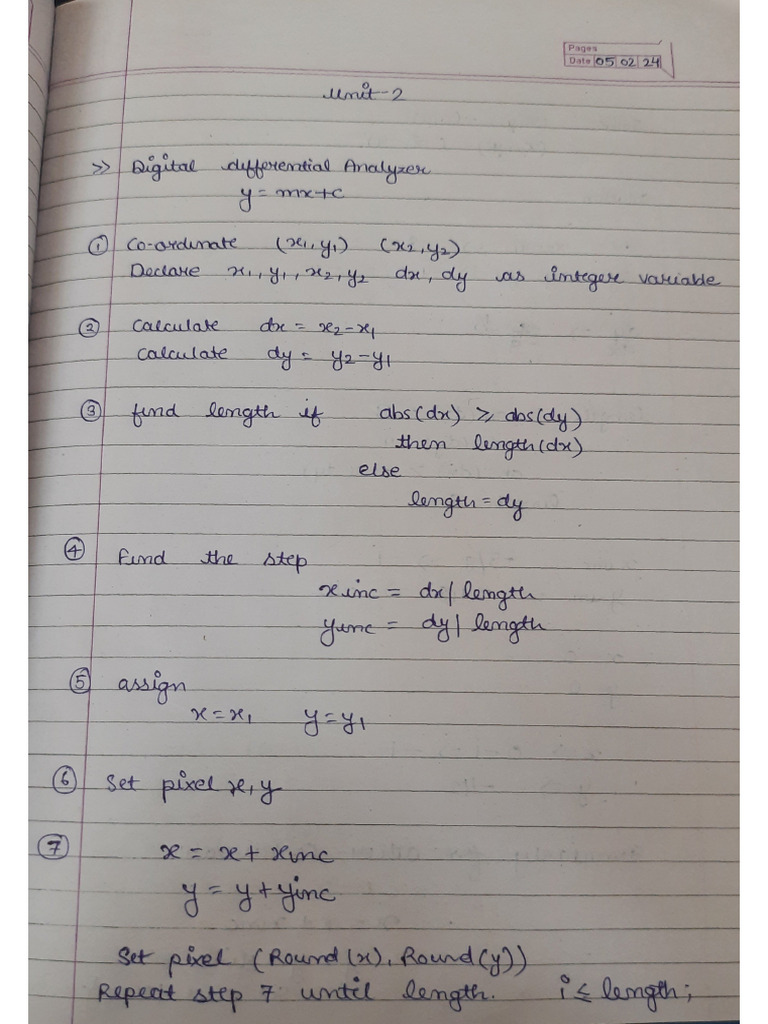 Pages
Date 05 02 24
Unit-2
>> Digital differential Analyzer
y = mx+c
① Co-ordinate (x₁, y₁) (x₂, y₂)
Declare x₁, y₁, x₂, y₂ dx, dy as integer variable
② Calculate dx = x₂-x₁
Calculate dy = y₂-y₁
③ find length if abs(dx) ⩾ abs(dy)
then length(dx)
else
length = dy
④ Find the step
xinc = dx/length
yinc = dy/length
⑤ assign
x = x₁ y = y₁
⑥ Set pixel x, y
⑦ x = x + xinc
y = y + yinc
Set pixel (Round(x), Round(y))
Repeat step 7 until length. i ≤ length;